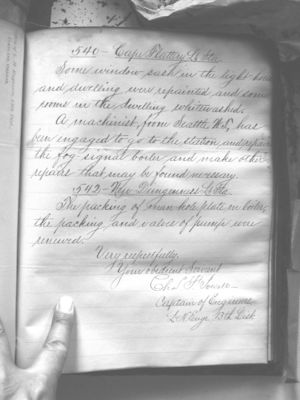 540 - Cape Flattery L. Sta.
Some window sash in the light house
and dwelling were repainted and some
rooms in the dwelling whitewashed.
A machinist, from Seattle W.T., has
been engaged to go to the station, and repair
the fog signal boiler and make other
repairs that may be found necessary.
542 - New Dungeness L. Sta.
The packing of man hole plate in boiler,
the packing and valves of pump were
renewed.
Very respectfully,
Your obedient Servant
Chas. F.
Captain of Engineers,
L.H. Engr. 13th Dist.